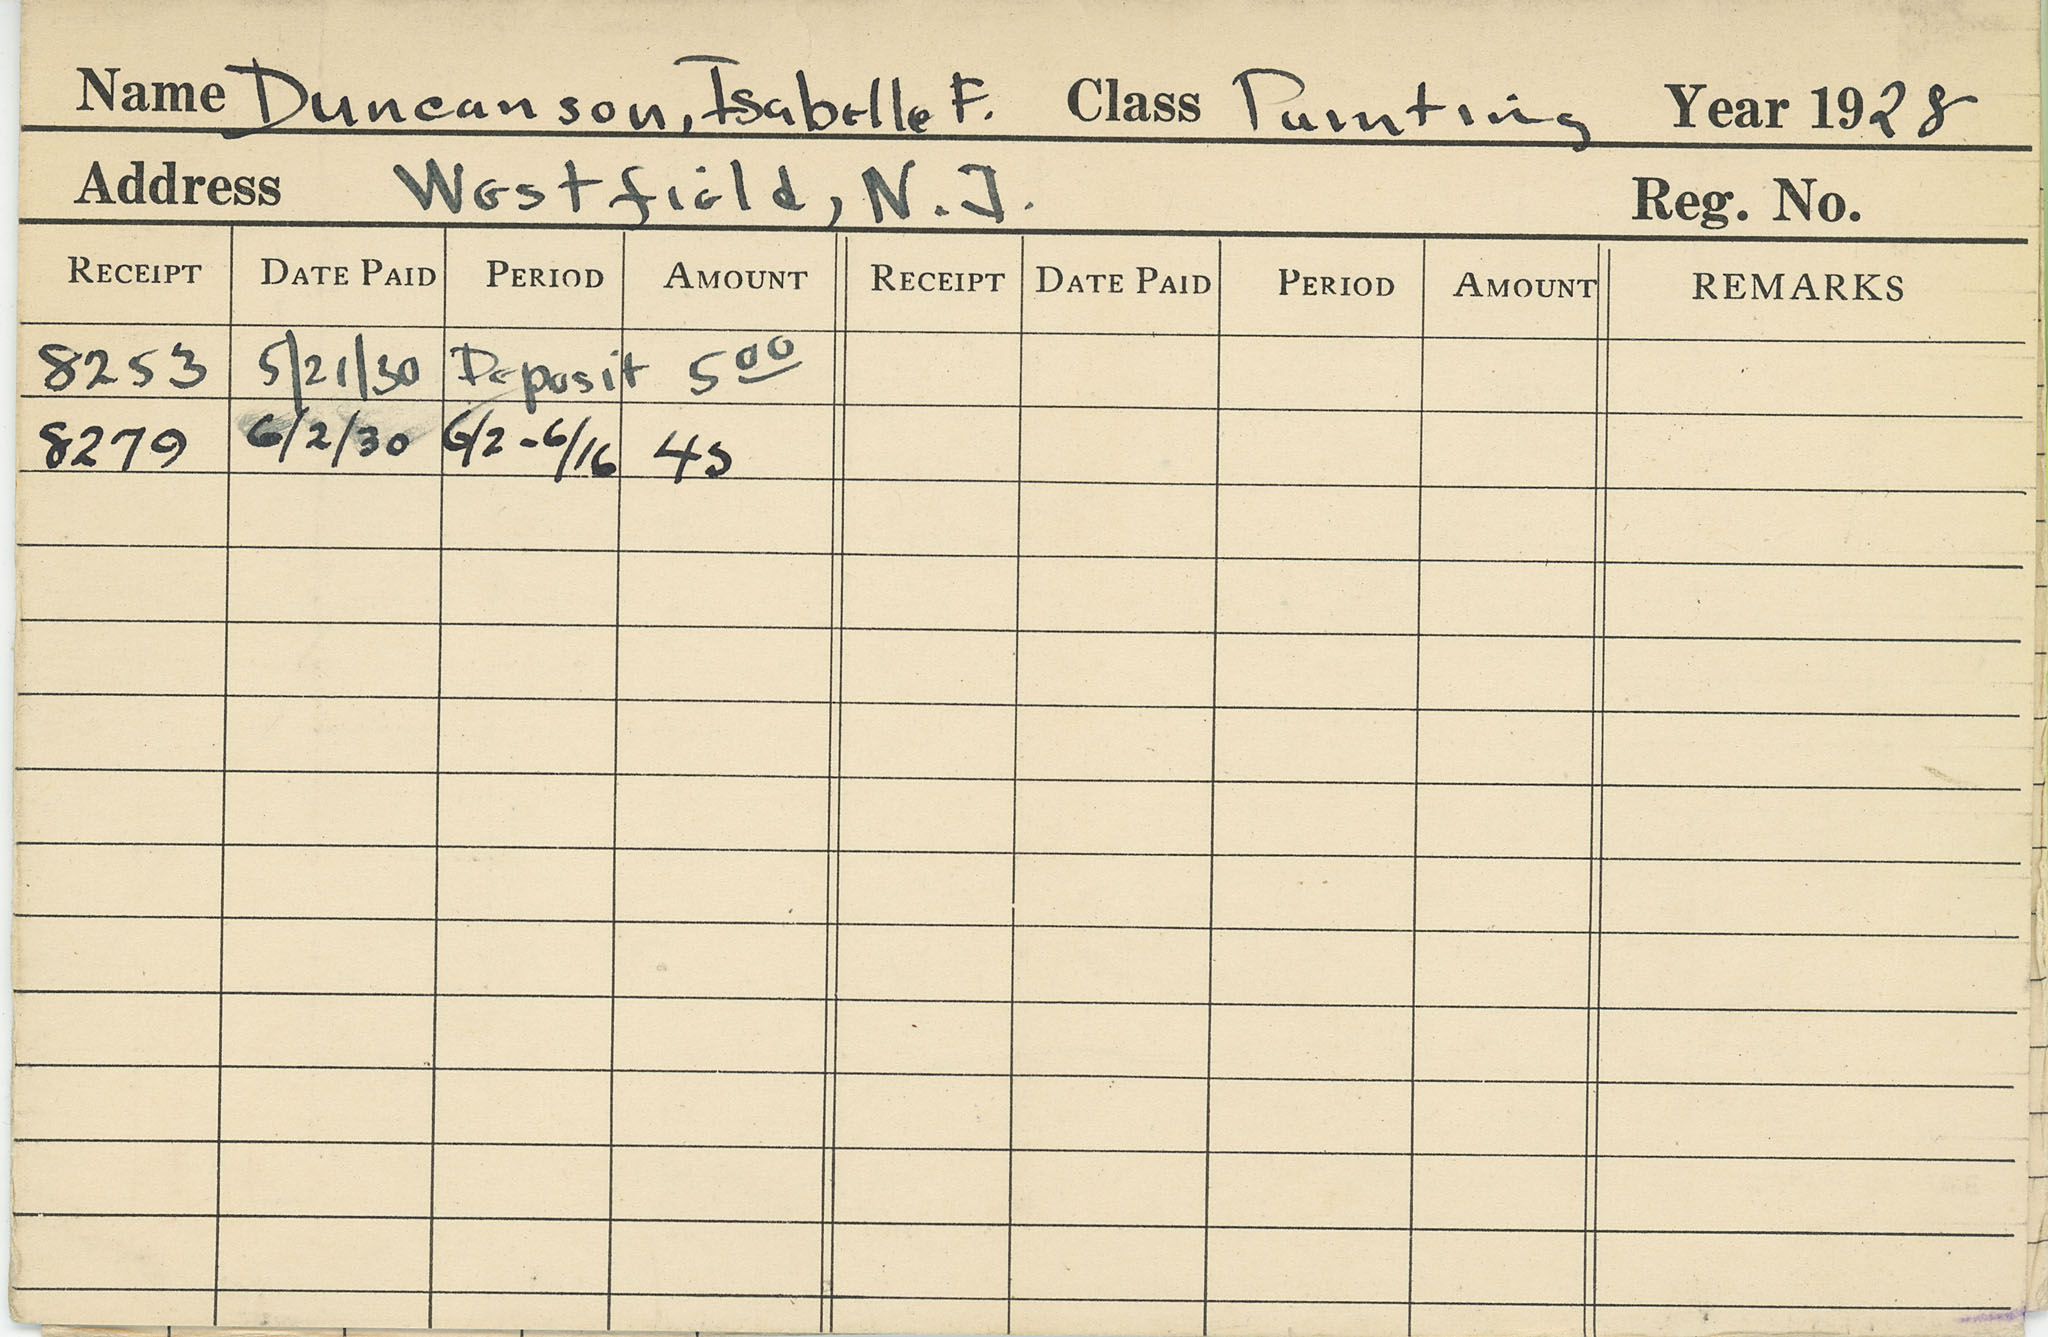 Name Duncanson, Isabelle F. Class Painting Year 1928
Address Westfield, N.J. Reg. No.
RECEIPT DATE PAID PERIOD AMOUNT RECEIPT DATE PAID PERIOD AMOUNT REMARKS
8253 5/21/30 Deposit 5 00
8279 6/2/30 6/2-6/16 45